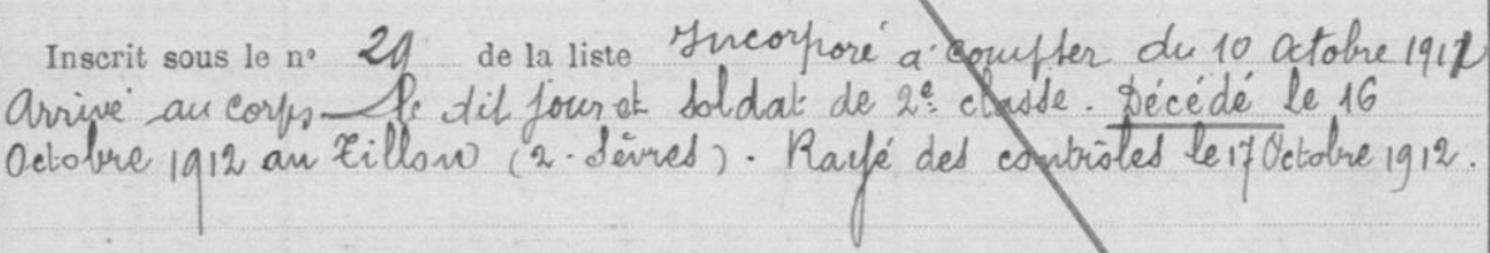 Inscrit sous le n° 29 de la liste Incorporé à compter du 10 Octobre 1912
Arrivé au corps le dit jour et soldat de 2e classe. Décédé le 16
Octobre 1912 au Tillou (2 - Sèvres). Rayé des contrôles le 17 Octobre 1912.